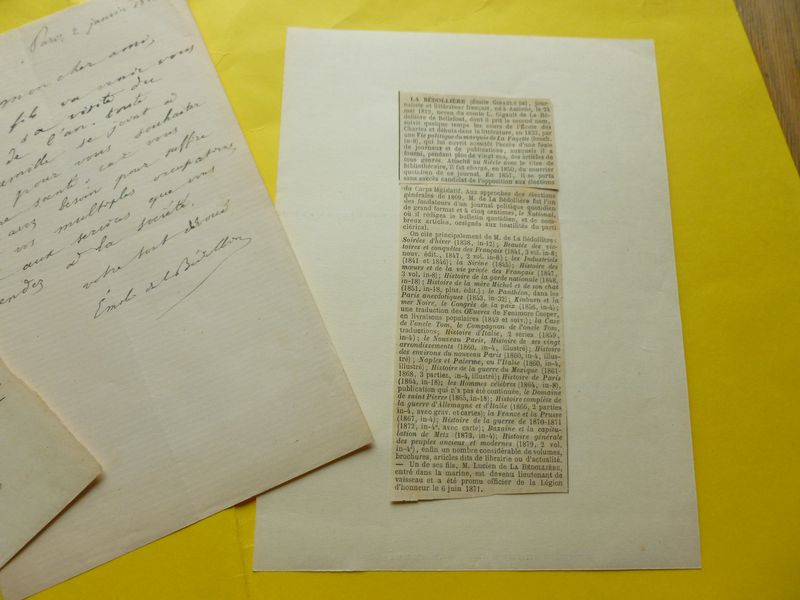 Paris 2 janvier
mon cher ami,
fils va vous
sa visite du
de l'an. toute
famille se joint à
pour vous souhaiter
santé, car vous
avez besoin pour suffire
vos multiples occupations,
aux services que vous
rendez à la société.
votre tout dévoué
Émile de la Bédollière
LA BÉDOLLIÈRE (Émile GIGAULT DE), jour-
naliste et littérateur français, né à Amiens, le 24
mai 1812, neveu du comte L. Gigault de La Bé-
dollière de Bellefont, dont il prit le second nom,
suivit quelque temps les cours de l'École des
Chartes et débuta dans la littérature, en 1833, par
une Vie politique du marquis de La Fayette (broch.
in-8), qui lui ouvrit aussitôt l'accès d'une foule
de journaux et de publications, auxquels il a
fourni, pendant plus de vingt ans, des articles de
tous genres. Attaché au Siècle avec le titre de
bibliothécaire, il fut chargé, en 1850, du courrier
quotidien de ce journal. En 1857, il se porta
sans succès candidat de l'opposition aux élections
du Corps législatif. Aux approches des élections
générales de 1869, M. de la Bédollière fut l'un
des fondateurs d'un journal politique quotidien
de grand format et à cinq centimes, le National,
où il rédigea le bulletin quotidien, et de nom-
breux articles, désignés aux hostilités du parti
clérical.
On cite principalement de M. de La Bédollière :
Soirées d'hiver (1838, in-12); Beautés des vic-
toires et conquêtes des Français (1841, 3 vol. in-8;
nouv. édit., 1847, 2 vol. in-8); les Industriels
(1841 et 1846); la Sirène (1845); Histoire des
mœurs et de la vie privée des Français (1847,
3 vol. in-8); Histoire de la garde nationale (1848,
in-18); Histoire de la mère Michel et de son chat
(1851, in-18, plus. édit.); le Panthéon, dans les
Paris anecdotiques (1853, in-32); Kinburn et la
mer Noire, le Congrès de la paix (1856, in-4);
une traduction des Œuvres de Fenimore Cooper,
en livraisons populaires (1849 et suiv.); la Case
de l'oncle Tom, le Compagnon de l'oncle Tom,
traductions; Histoire d'Italie, 2 séries (1859,
in-4); le Nouveau Paris, Histoire de ses vingt
arrondissements (1860, in-4, illustré); Histoire
des environs du nouveau Paris (1860, in-4, illus-
tré); Naples et Palerme, ou l'Italie (1860, in-4,
illustré); Histoire de la guerre du Mexique (1861-
1868, 3 parties, in-4, illustré); Histoire de Paris
(1864, in-18); les Hommes célèbres (1864, in-8),
publication qui n'a pas été continuée, le Domaine
de saint Pierre (1865, in-18); Histoire complète de
la guerre d'Allemagne et d'Italie (1866, 2 parties
in-4, avec grav. et cartes); la France et la Prusse
(1867, in-4); Histoire de la guerre de 1870-1871
(1872, in-4°, avec carte); Bazaine et la capitu-
lation de Metz (1873, in-4); Histoire générale
des peuples anciens et modernes (1879, 2 vol.
in-4°), enfin un nombre considérable de volumes,
brochures, articles dits de librairie ou d'actualité.
— Un de ses fils, M. Lucien de LA BÉDOLLIÈRE,
entré dans la marine, est devenu lieutenant de
vaisseau et a été promu officier de la Légion
d'honneur le 6 juin 1871.